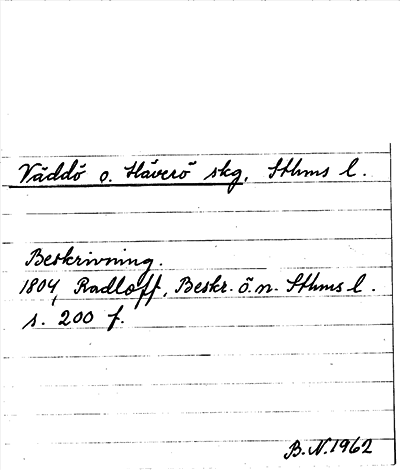 Väddö o. Häverö skg, Sthms l.
Beskrivning.
1804, Radloff, Beskr. ö. n. Sthms l.
s. 200 f.
B.N. 1962